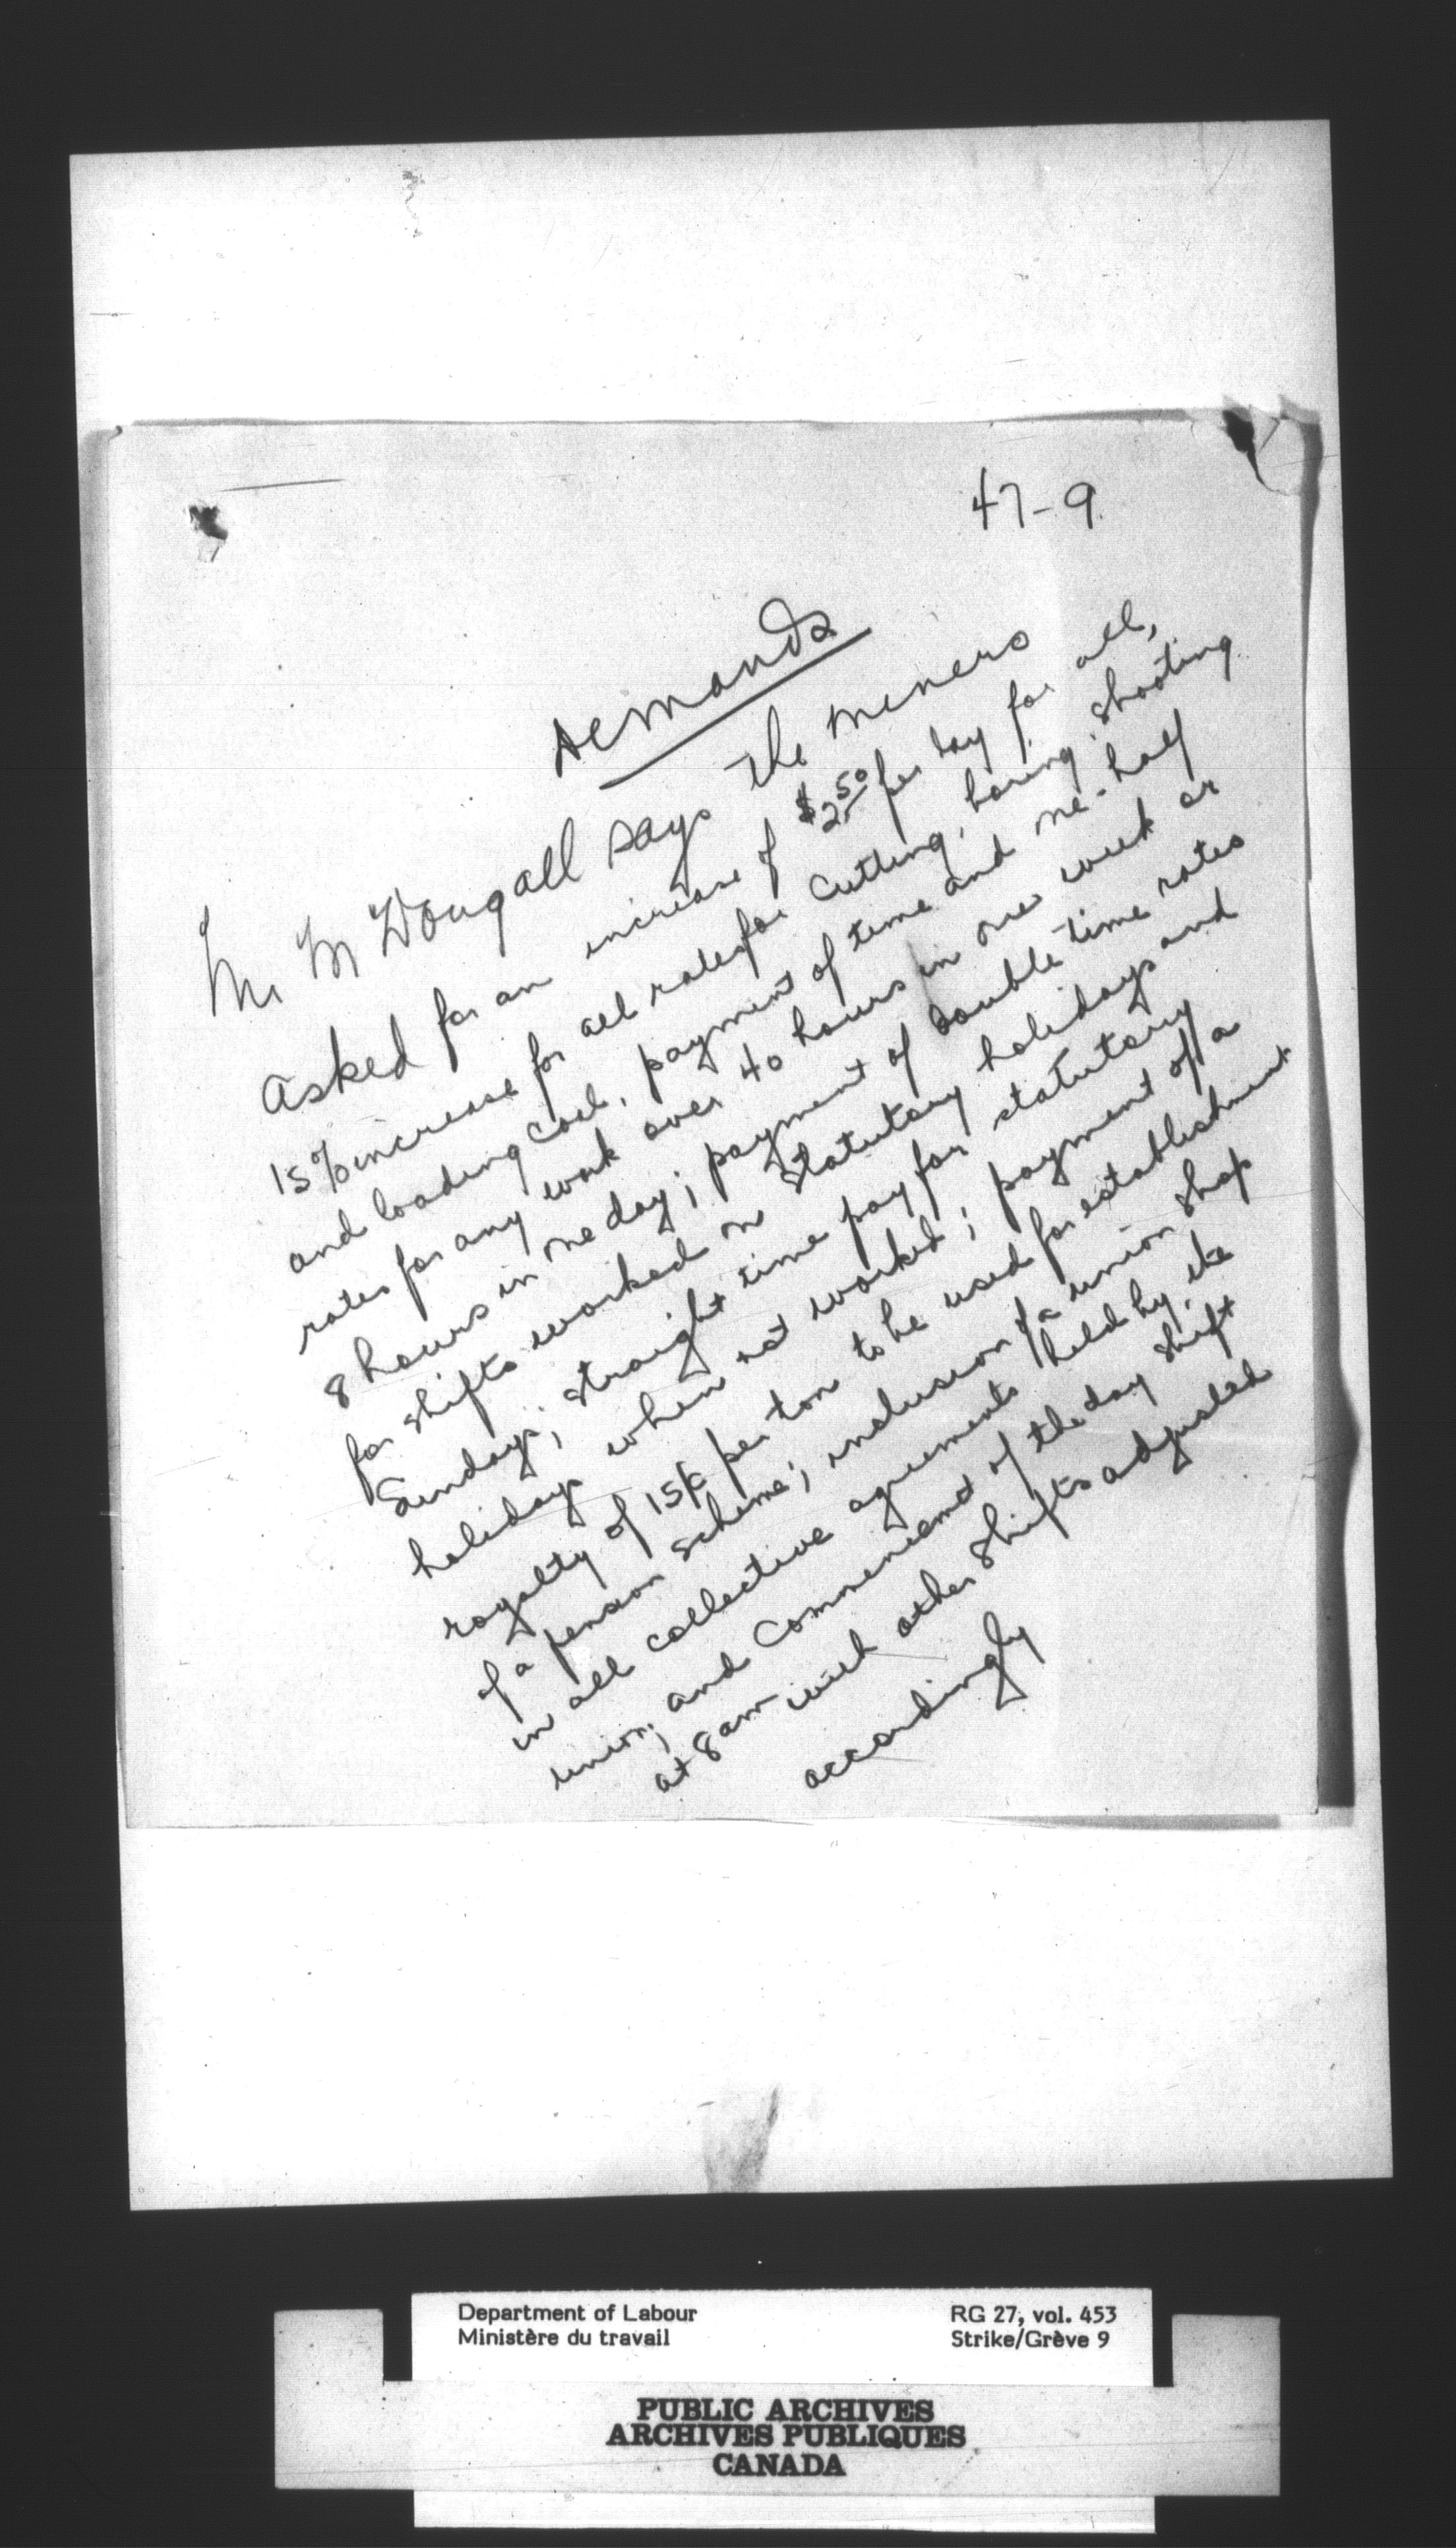 47-9
Demands
Mr McDougall says the miners
asked for an increase of $2.50 per day for all,
15% increase for all rates for cutting, boring, shooting
and loading coal, payment of time and one-half
rates for any work over 40 hours in one week or
8 hours in one day; payment of double time rates
for shifts worked on statutory holidays and
Sundays; straight time pay for statutory
holidays when not worked; payment of a
royalty of 15¢ per ton to be used for establishment
of a pension scheme; inclusion of a union shop
in all collective agreements held by the
union; and commencement of the day shift
at 8 am with other shifts adjusted
accordingly
Department of Labour
Ministère du travail
RG 27, vol. 453
Strike/Grève 9
PUBLIC ARCHIVES
ARCHIVES PUBLIQUES
CANADA